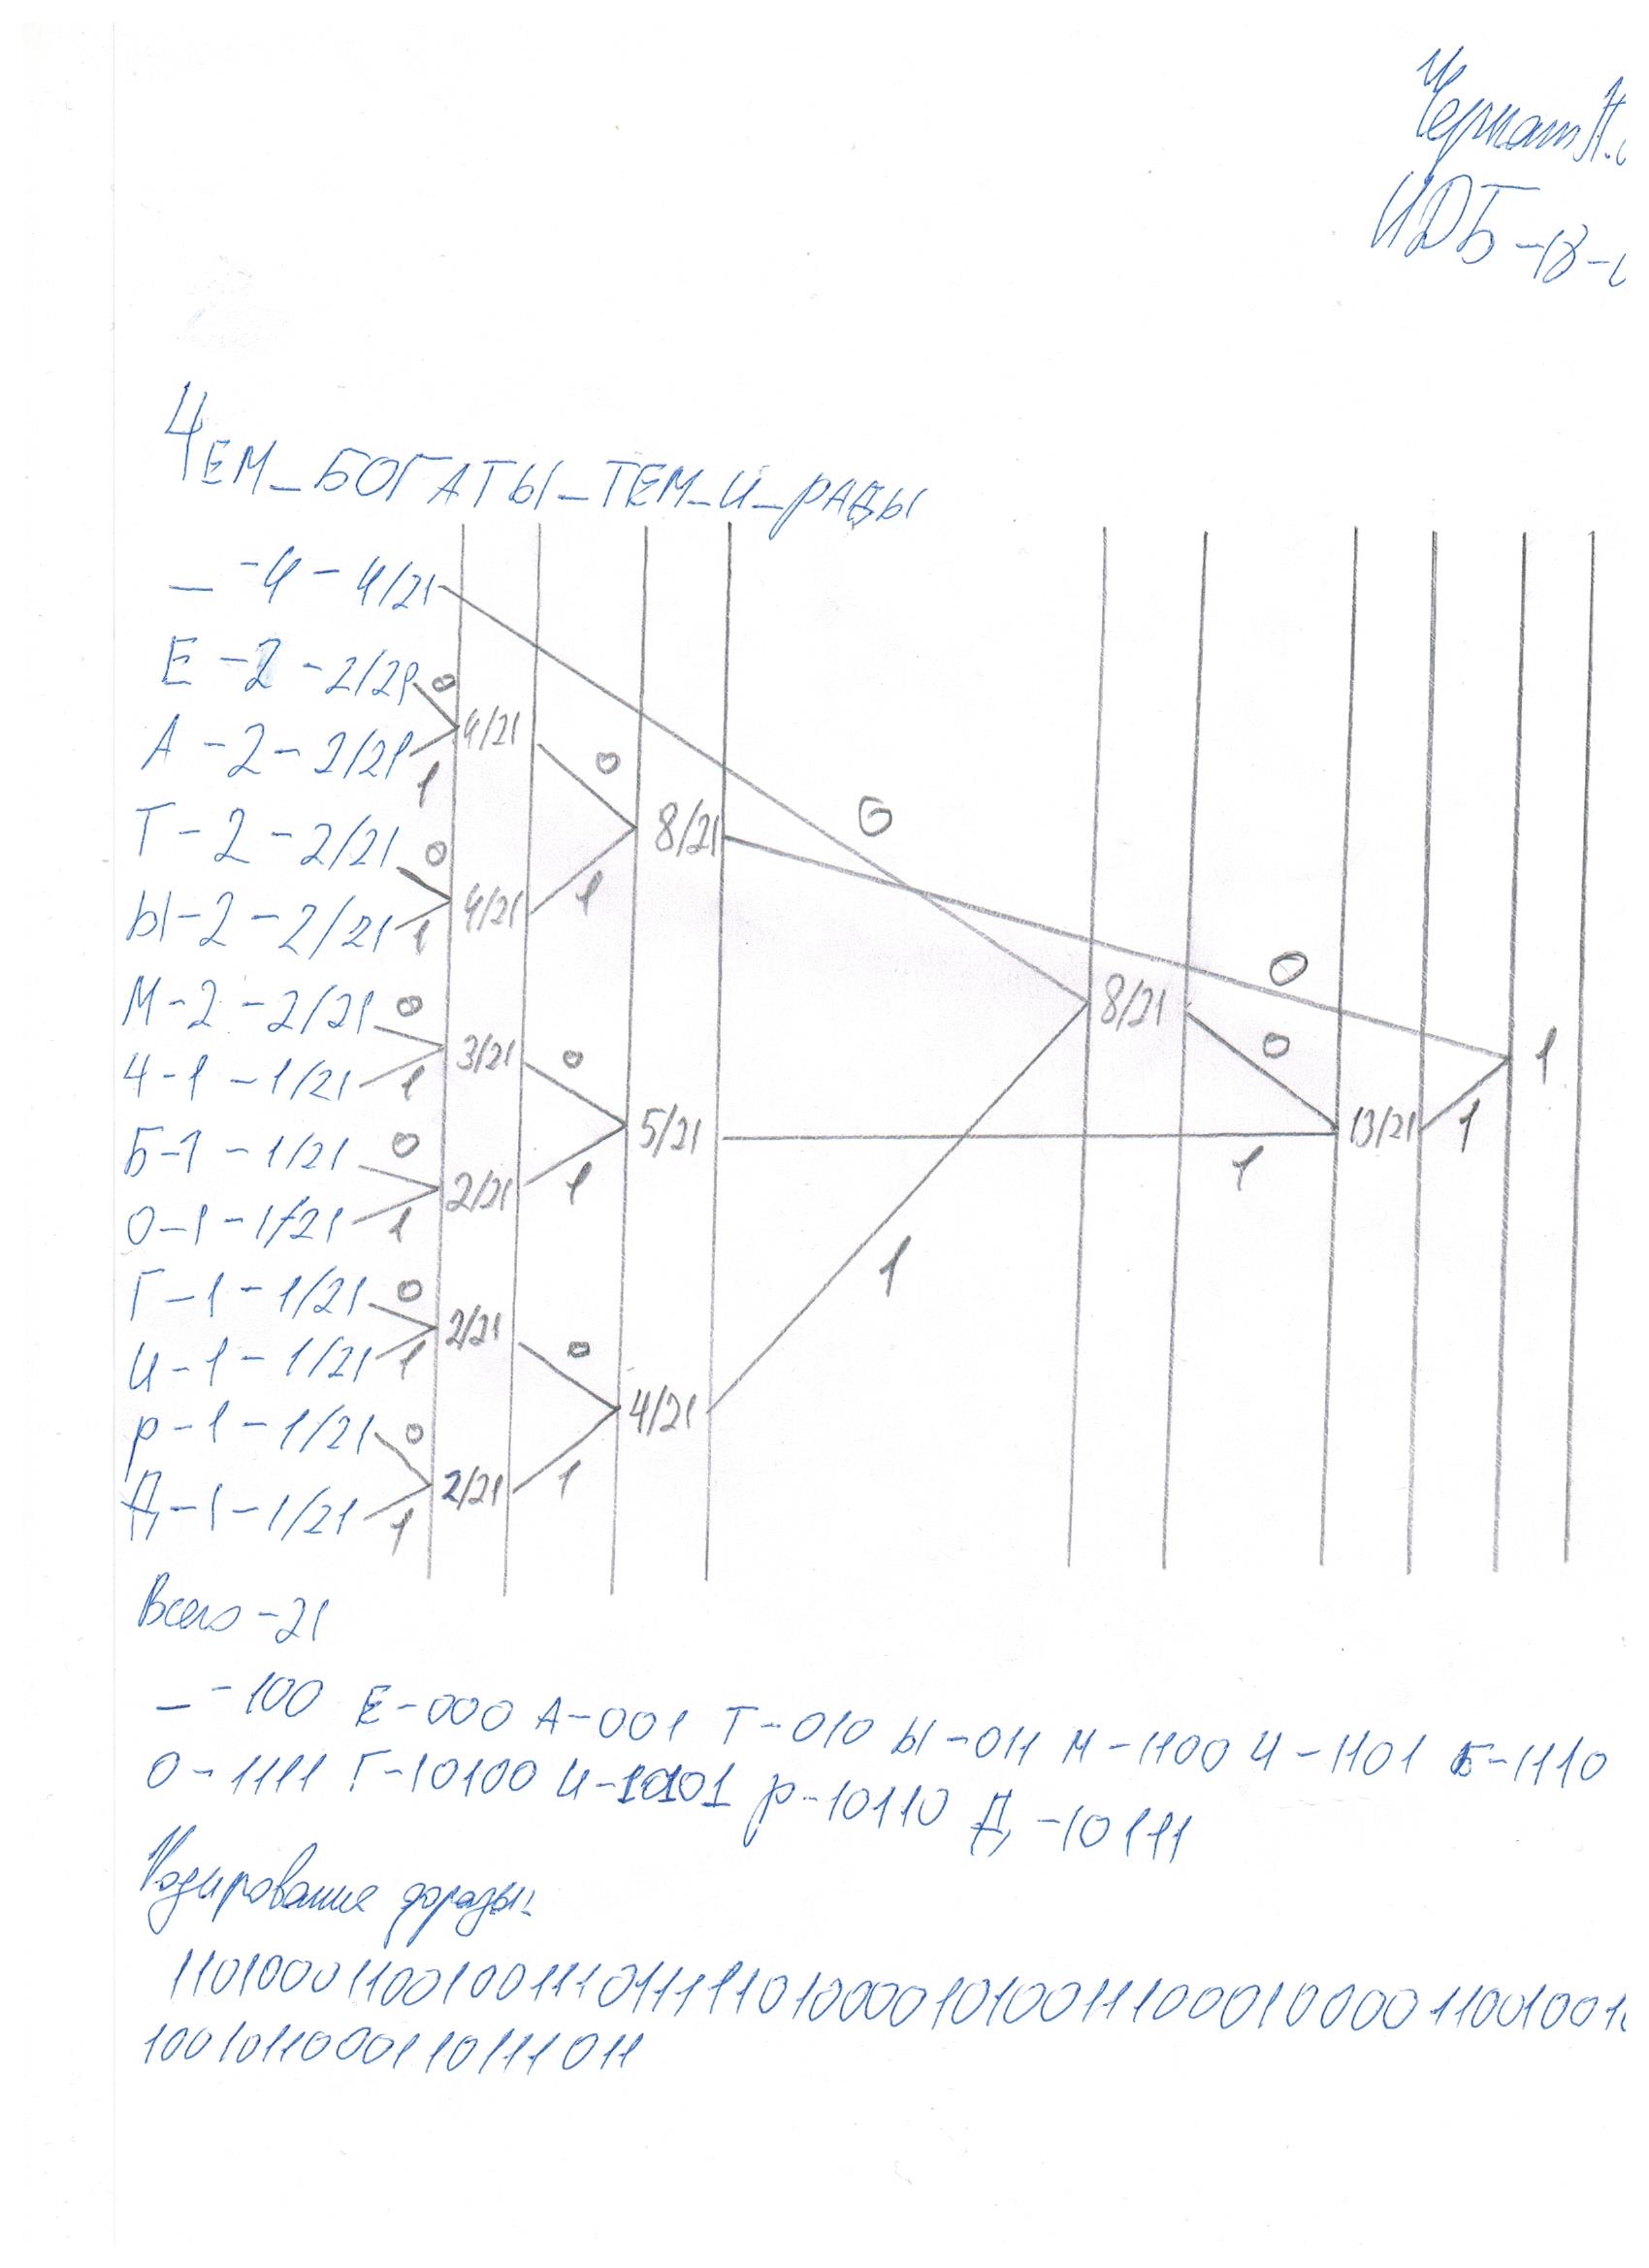 Чернат А.
ИДБ-18-
ЧЕМ_БОГАТЫ_ТЕМ_И_РАДЫ
_ - 4 - 4/21
Е - 2 - 2/21 0
4/21
А - 2 - 2/21 1
0
Т - 2 - 2/21 0
8/21 0
Ы - 2 - 2/21 1
4/21 1
0
М - 2 - 2/21 0
8/21
Ч - 1 - 1/21 1
3/21 0
0
1
Б - 1 - 1/21 0
5/21
13/21 1
О - 1 - 1/21 1
2/21 1
1
Г - 1 - 1/21 0
1
И - 1 - 1/21 1
2/21 0
Р - 1 - 1/21 0
4/21
Д - 1 - 1/21 1
2/21 1
Всего - 21
_ - 100 Е - 000 А - 001 Т - 010 Ы - 011 М - 1100 Ч - 1101 Б - 1110
О - 1111 Г - 10100 И - 10101 Р - 10110 Д - 10111
Кодирование фразы:
1101000110010011101111101000010100111000100001100100
1001011000110111011